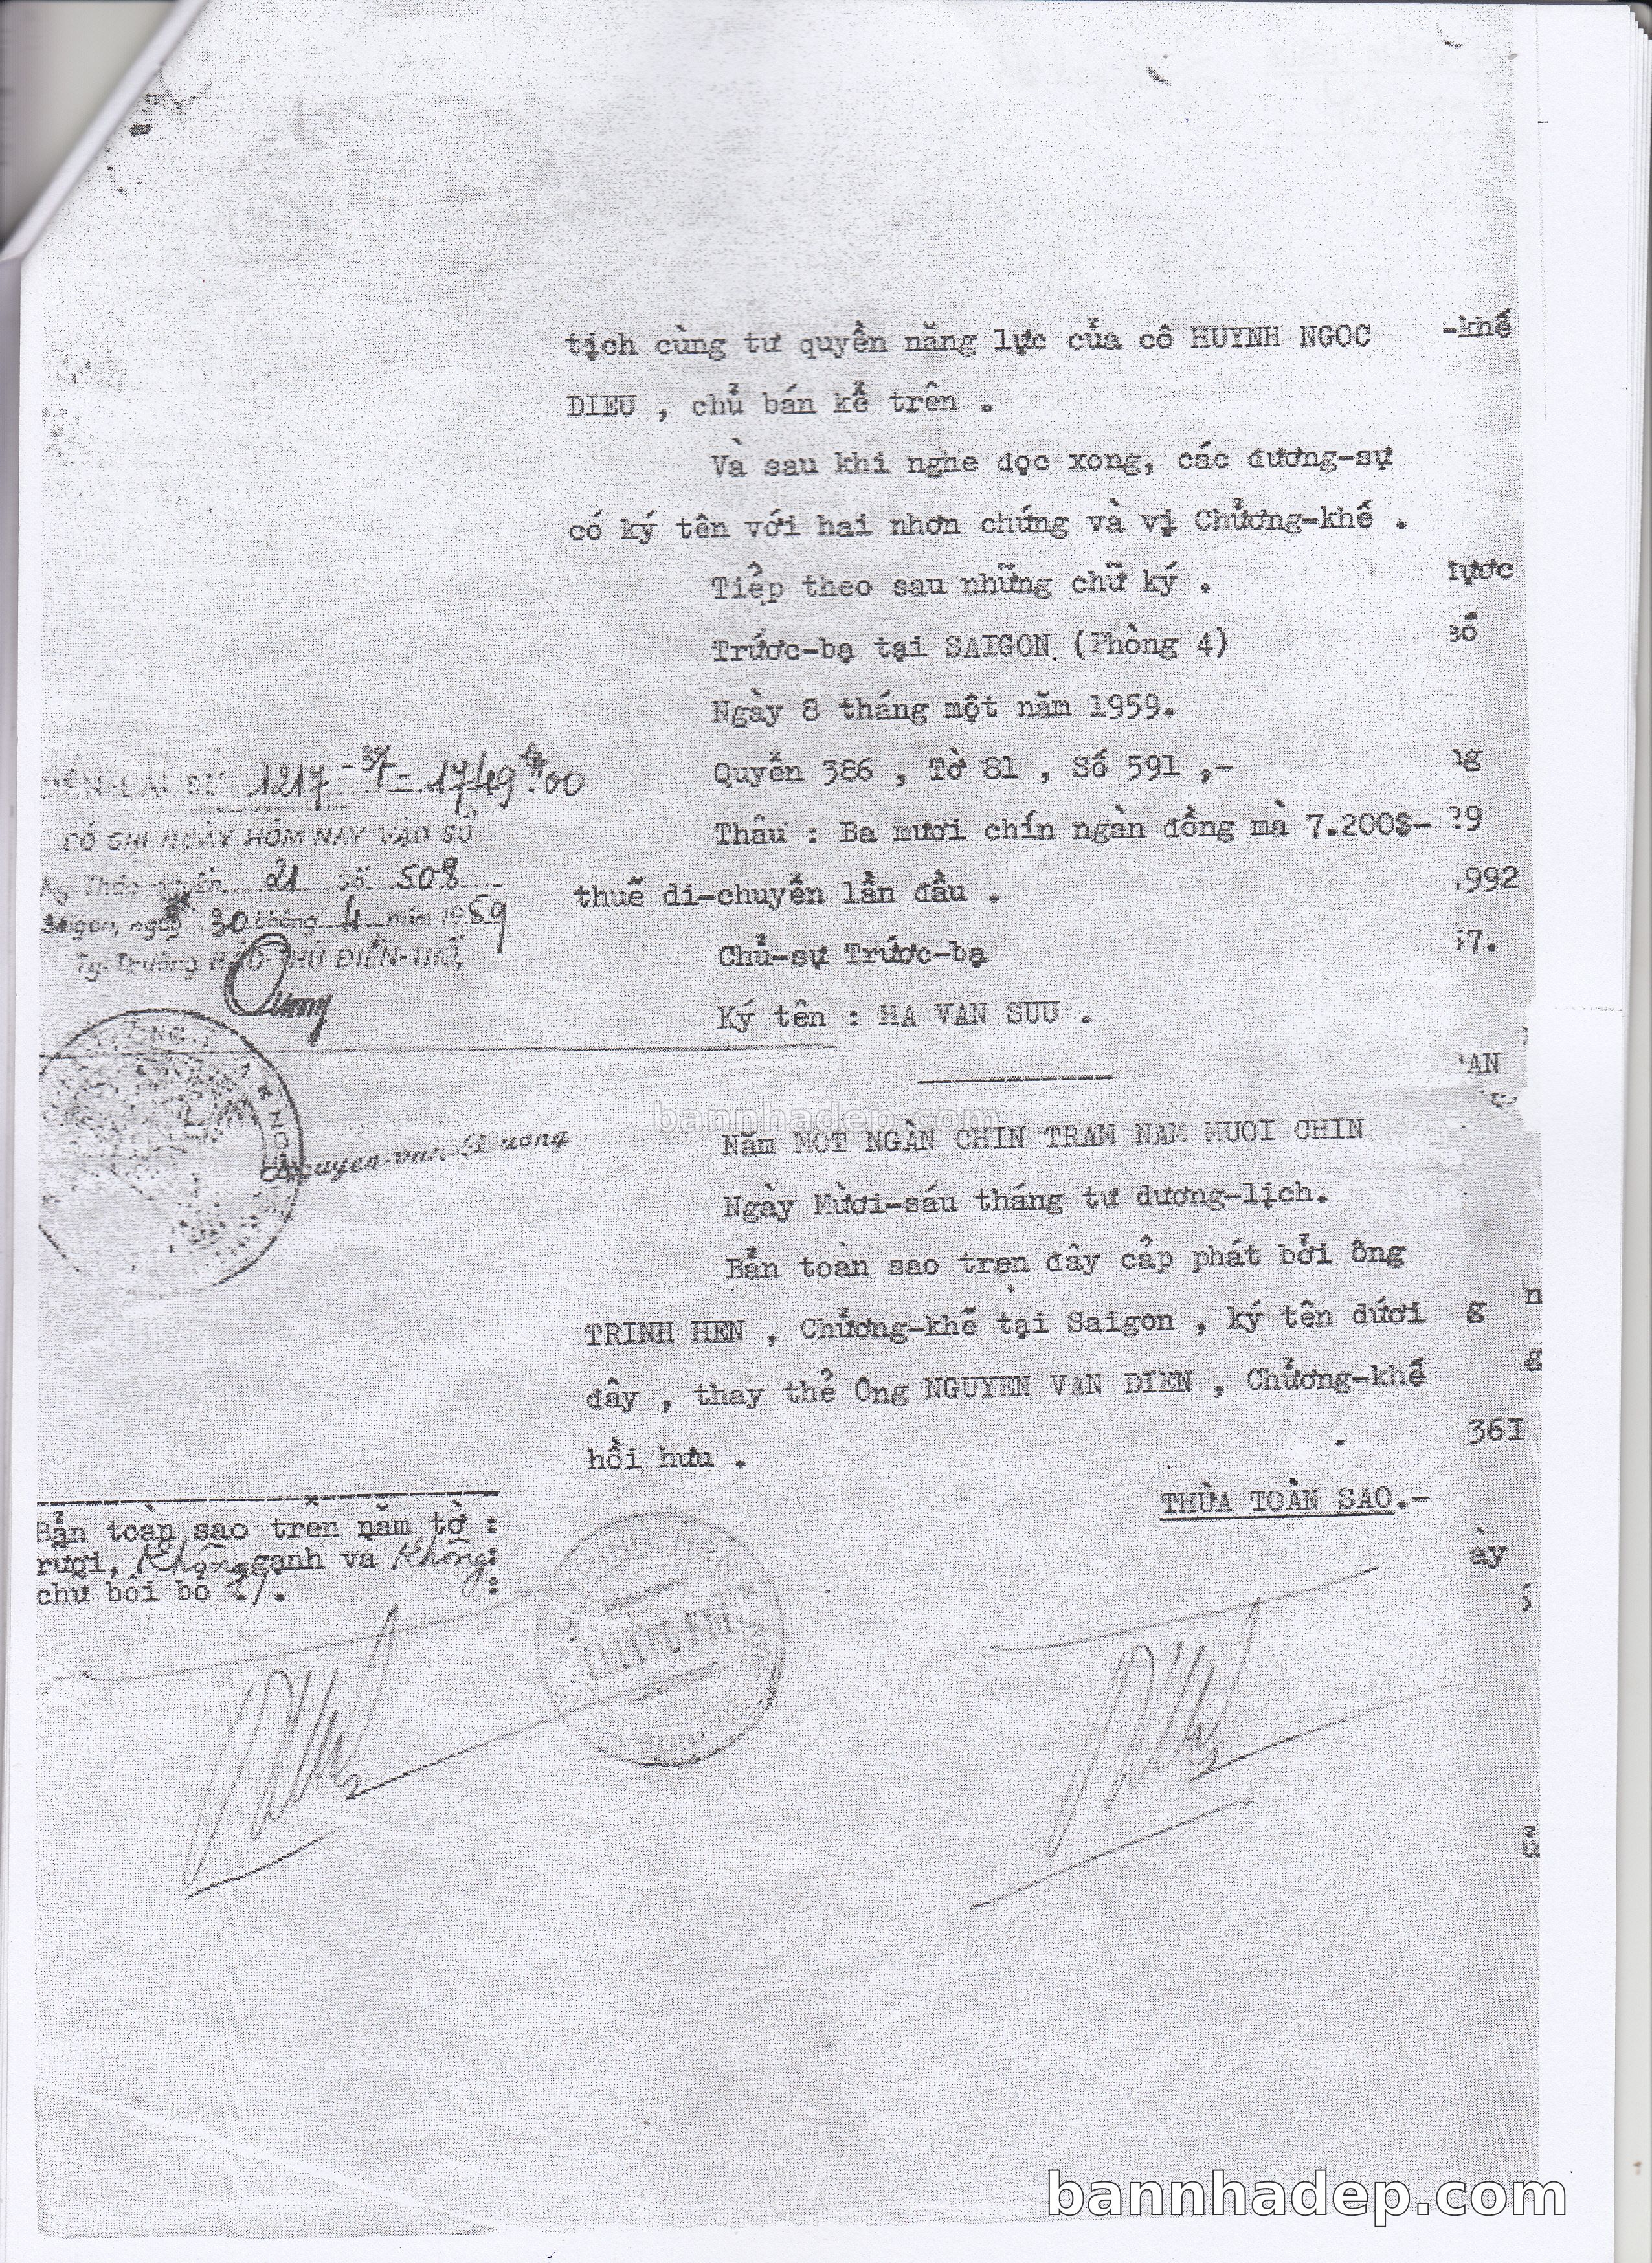 tịch cùng tư quyền năng lực của cô HUYNH NGOC
-khế
DIEU , chủ bán kể trên .
Và sau khi nghe đọc xong, các đương-sự
có ký tên với hai nhơn chứng và vị Chưởng-khế .
Tiếp theo sau những chữ ký .
lược
số
Trước-bạ tại SAIGON. (Phòng 4)
Ngày 8 tháng một năm 1959.
Quyển 386 , Tờ 81 , Số 591 ,-
ng
Thâu : Ba mươi chín ngàn đồng mà 7.200$-
29
thuế di-chuyển lần đầu .
.992
Chủ-sự Trước-bạ
57.
Ký tên : HA VAN SUU .
AN
1217 - 37 - 1749 00
CÓ GHI NGÀY HÔM NAY VÀO SỔ
Ký Thác quyển 21 Số 508
Saigon, ngày 30 tháng 4 năm 1959
Tg-Trưởng BẢO-THỦ ĐIỀN-THỔ,
Nguyen-van-
bannhadep.com
Năm MOT NGÀN CHIN TRAM NAM MUOI CHIN
Ngày Mười-sáu tháng tư dương-lịch.
Bản toàn sao trên đây cấp phát bởi ông
TRINH HEN , Chưởng-khế tại Saigon , ký tên dưới
g
n
đây , thay thế Ông NGUYEN VAN DIEN , Chưởng-khế
g
hồi hưu .
36I
THỪA TOÀN SAO.-
Bản toàn sao trên năm tờ :
rưởi, Không gạnh và Không :
chữ bôi bỏ ./. :
ày
ủ
bannhadep.com